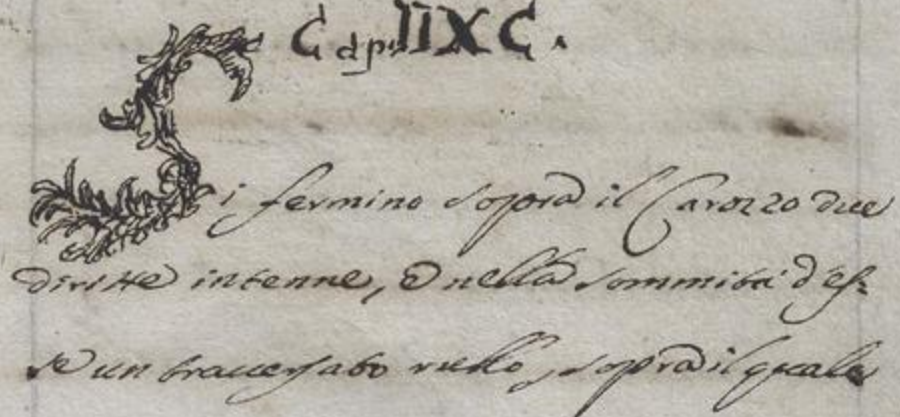 Cap. IIXC.
Si fermino sopra il Carozzo due
diritte intenne, e nella sommità d'es-
se un trauersato rullo, sopra il quale